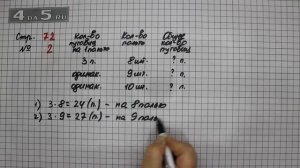 4DS.RU
Стр. 72
№ 2
Кол-во пуговиц на 1 пальто
Кол-во пальто
Общее кол-во пуговиц
3 п. 8 шт. ? п.
одинак. 9 шт. ? п.
одинак. 10 шт. ? п.
1) 3·8=24 (п.) - на 8 пальто
2) 3·9=27 (п.) - на 9 паль